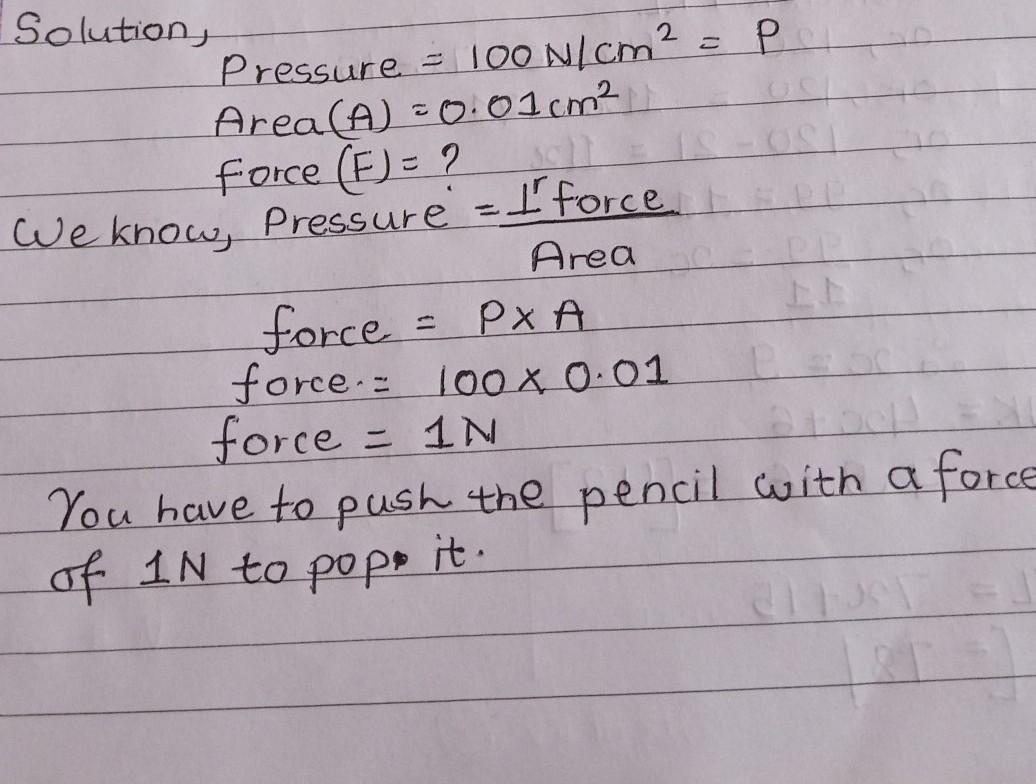 Solution,
Pressure = 100 N/cm² = P
Area(A) = 0.01cm²
force (F) = ?
We know, Pressure = ⊥ʳ force
Area
force = P x A
force = 100 x 0.01
force = 1N
You have to push the pencil with a force
of 1N to pop it.